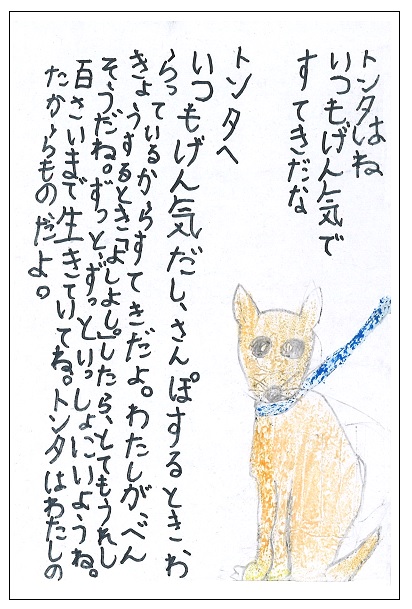 トンタはね
いつもげん気で
すてきだな
トンタへ
いつもげん気だし、さんぽするとき、わ
らっているからすてきだよ。わたしが、べん
きょうするとき「よしよし」したら、とてもうれし
そうだね。ずっと、ずっといっしょにいようね。
百さいまで生きていてね。トンタはわたしの
たからものだよ。